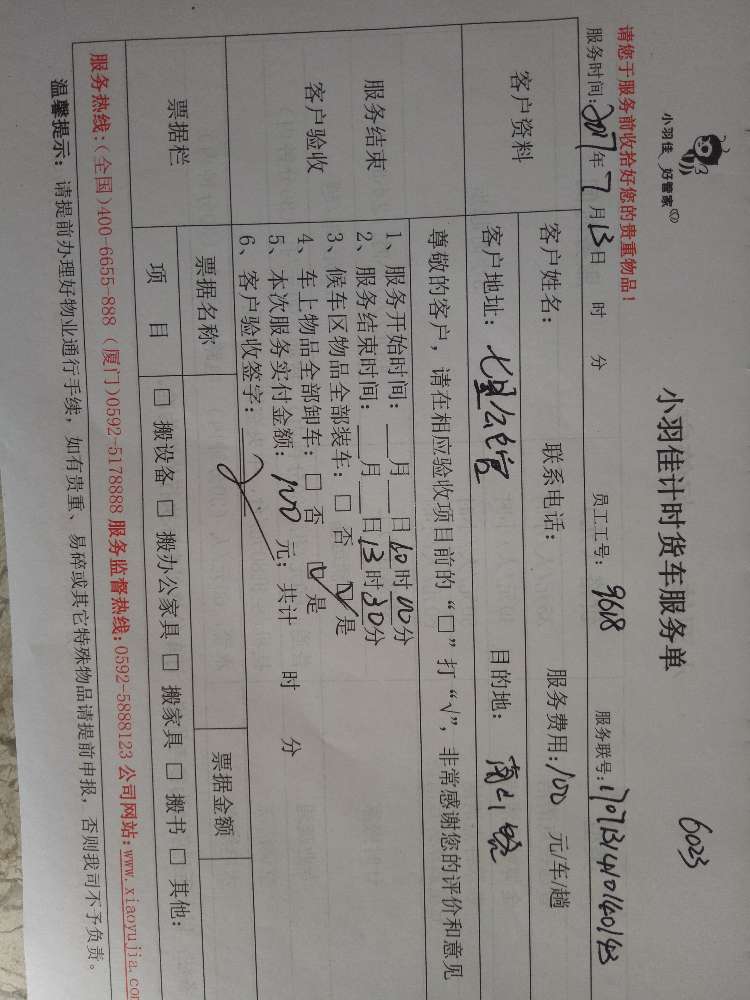 小羽佳 好管家
小羽佳计时货车服务单
6033
请您于服务前收拾好您的贵重物品!
服务时间:2017年7月13日 时 分 员工工号: 9618 服务联号:
客户资料
客户姓名: 联系电话: 服务费用:100 元/车/趟
客户地址: 七星公官 目的地:
服务结束
客户验收
尊敬的客户,请在相应验收项目前的“□”打“√”,非常感谢您的评价和意见
1、服务开始时间:___月___日 时00分
2、服务结束时间:___月___日13时30分
3、候车区物品全部装车:□ 否 ☑ 是
4、车上物品全部卸车:□ 否 ☑ 是
5、本次服务实付金额: 100 元;共计 时 分
6、客户验收签字:
票据栏
票据名称 票据金额
项 目 □ 搬设备 □ 搬办公家具 □ 搬家具 □ 搬书 □ 其他:
服务热线:(全国)400-6655-888 (厦门)0592-5178888 服务监督热线:0592-5888123 公司网站:www.xiaoyujia.co
温馨提示: 请提前办理好物业通行手续,如有贵重、易碎或其它特殊物品请提前申报,否则我司不予负责。